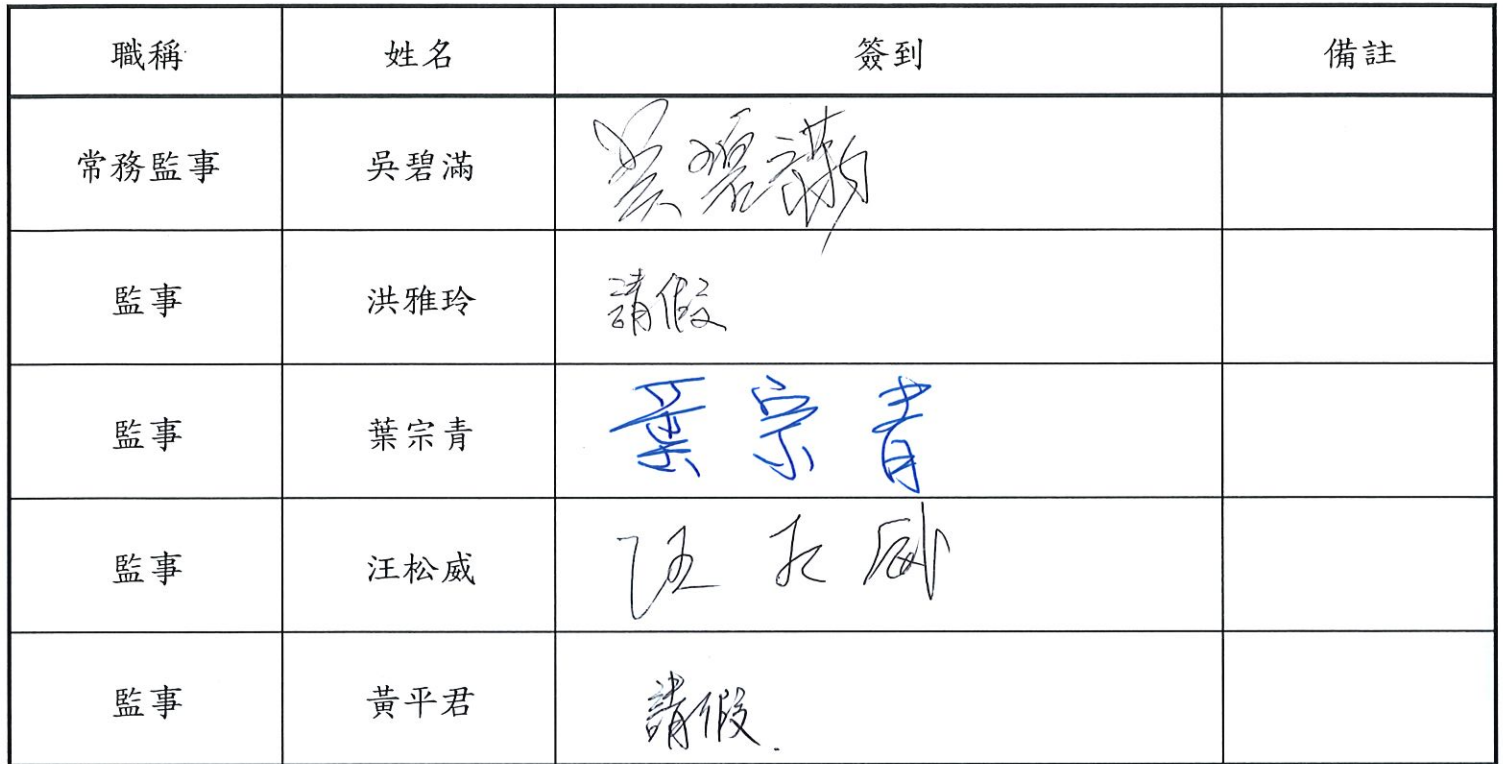 職稱 姓名 簽到 備註
常務監事 吳碧滿 吳碧滿
監事 洪雅玲 請假
監事 葉宗青 葉宗青
監事 汪松威 汪松威
監事 黃平君 請假.